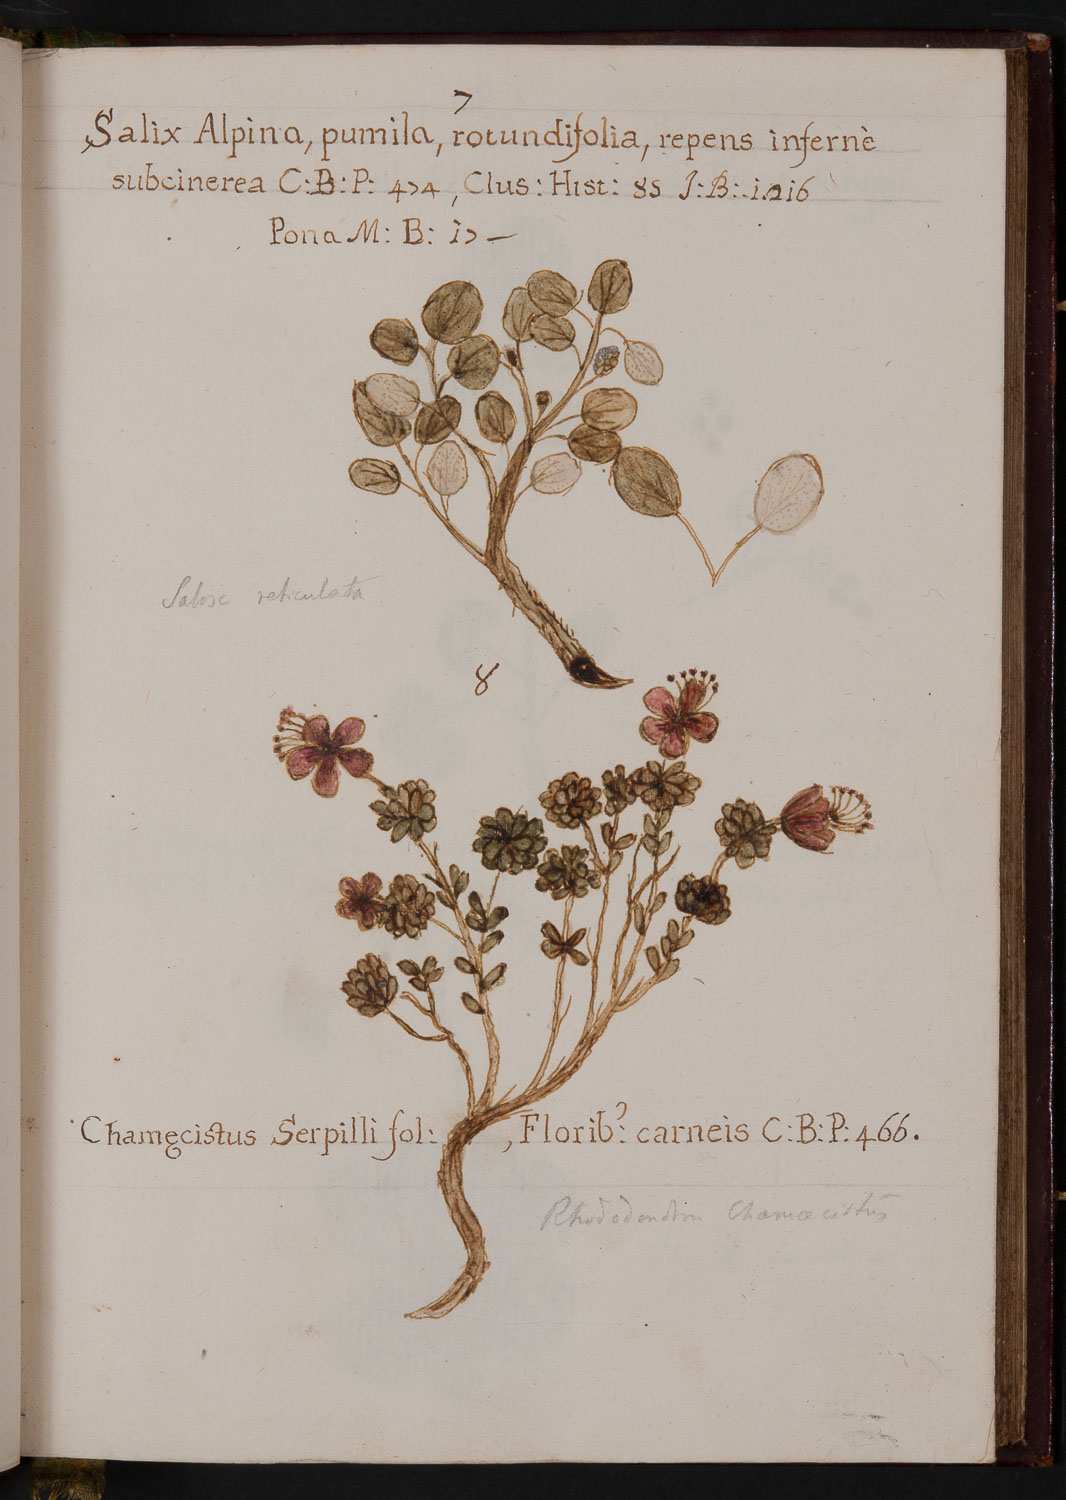 7
Salix Alpina, pumila, rotundifolia, repens infernè
subcinerea C:B:P: 474, Clus: Hist: 85 J:B: 1.216
Pona M: B: 17 —
Salix reticulata
8
Chamęcistus Serpilli fol: , Florib?: carneis C:B:P: 466.
Rhododendrm Chamæcistus